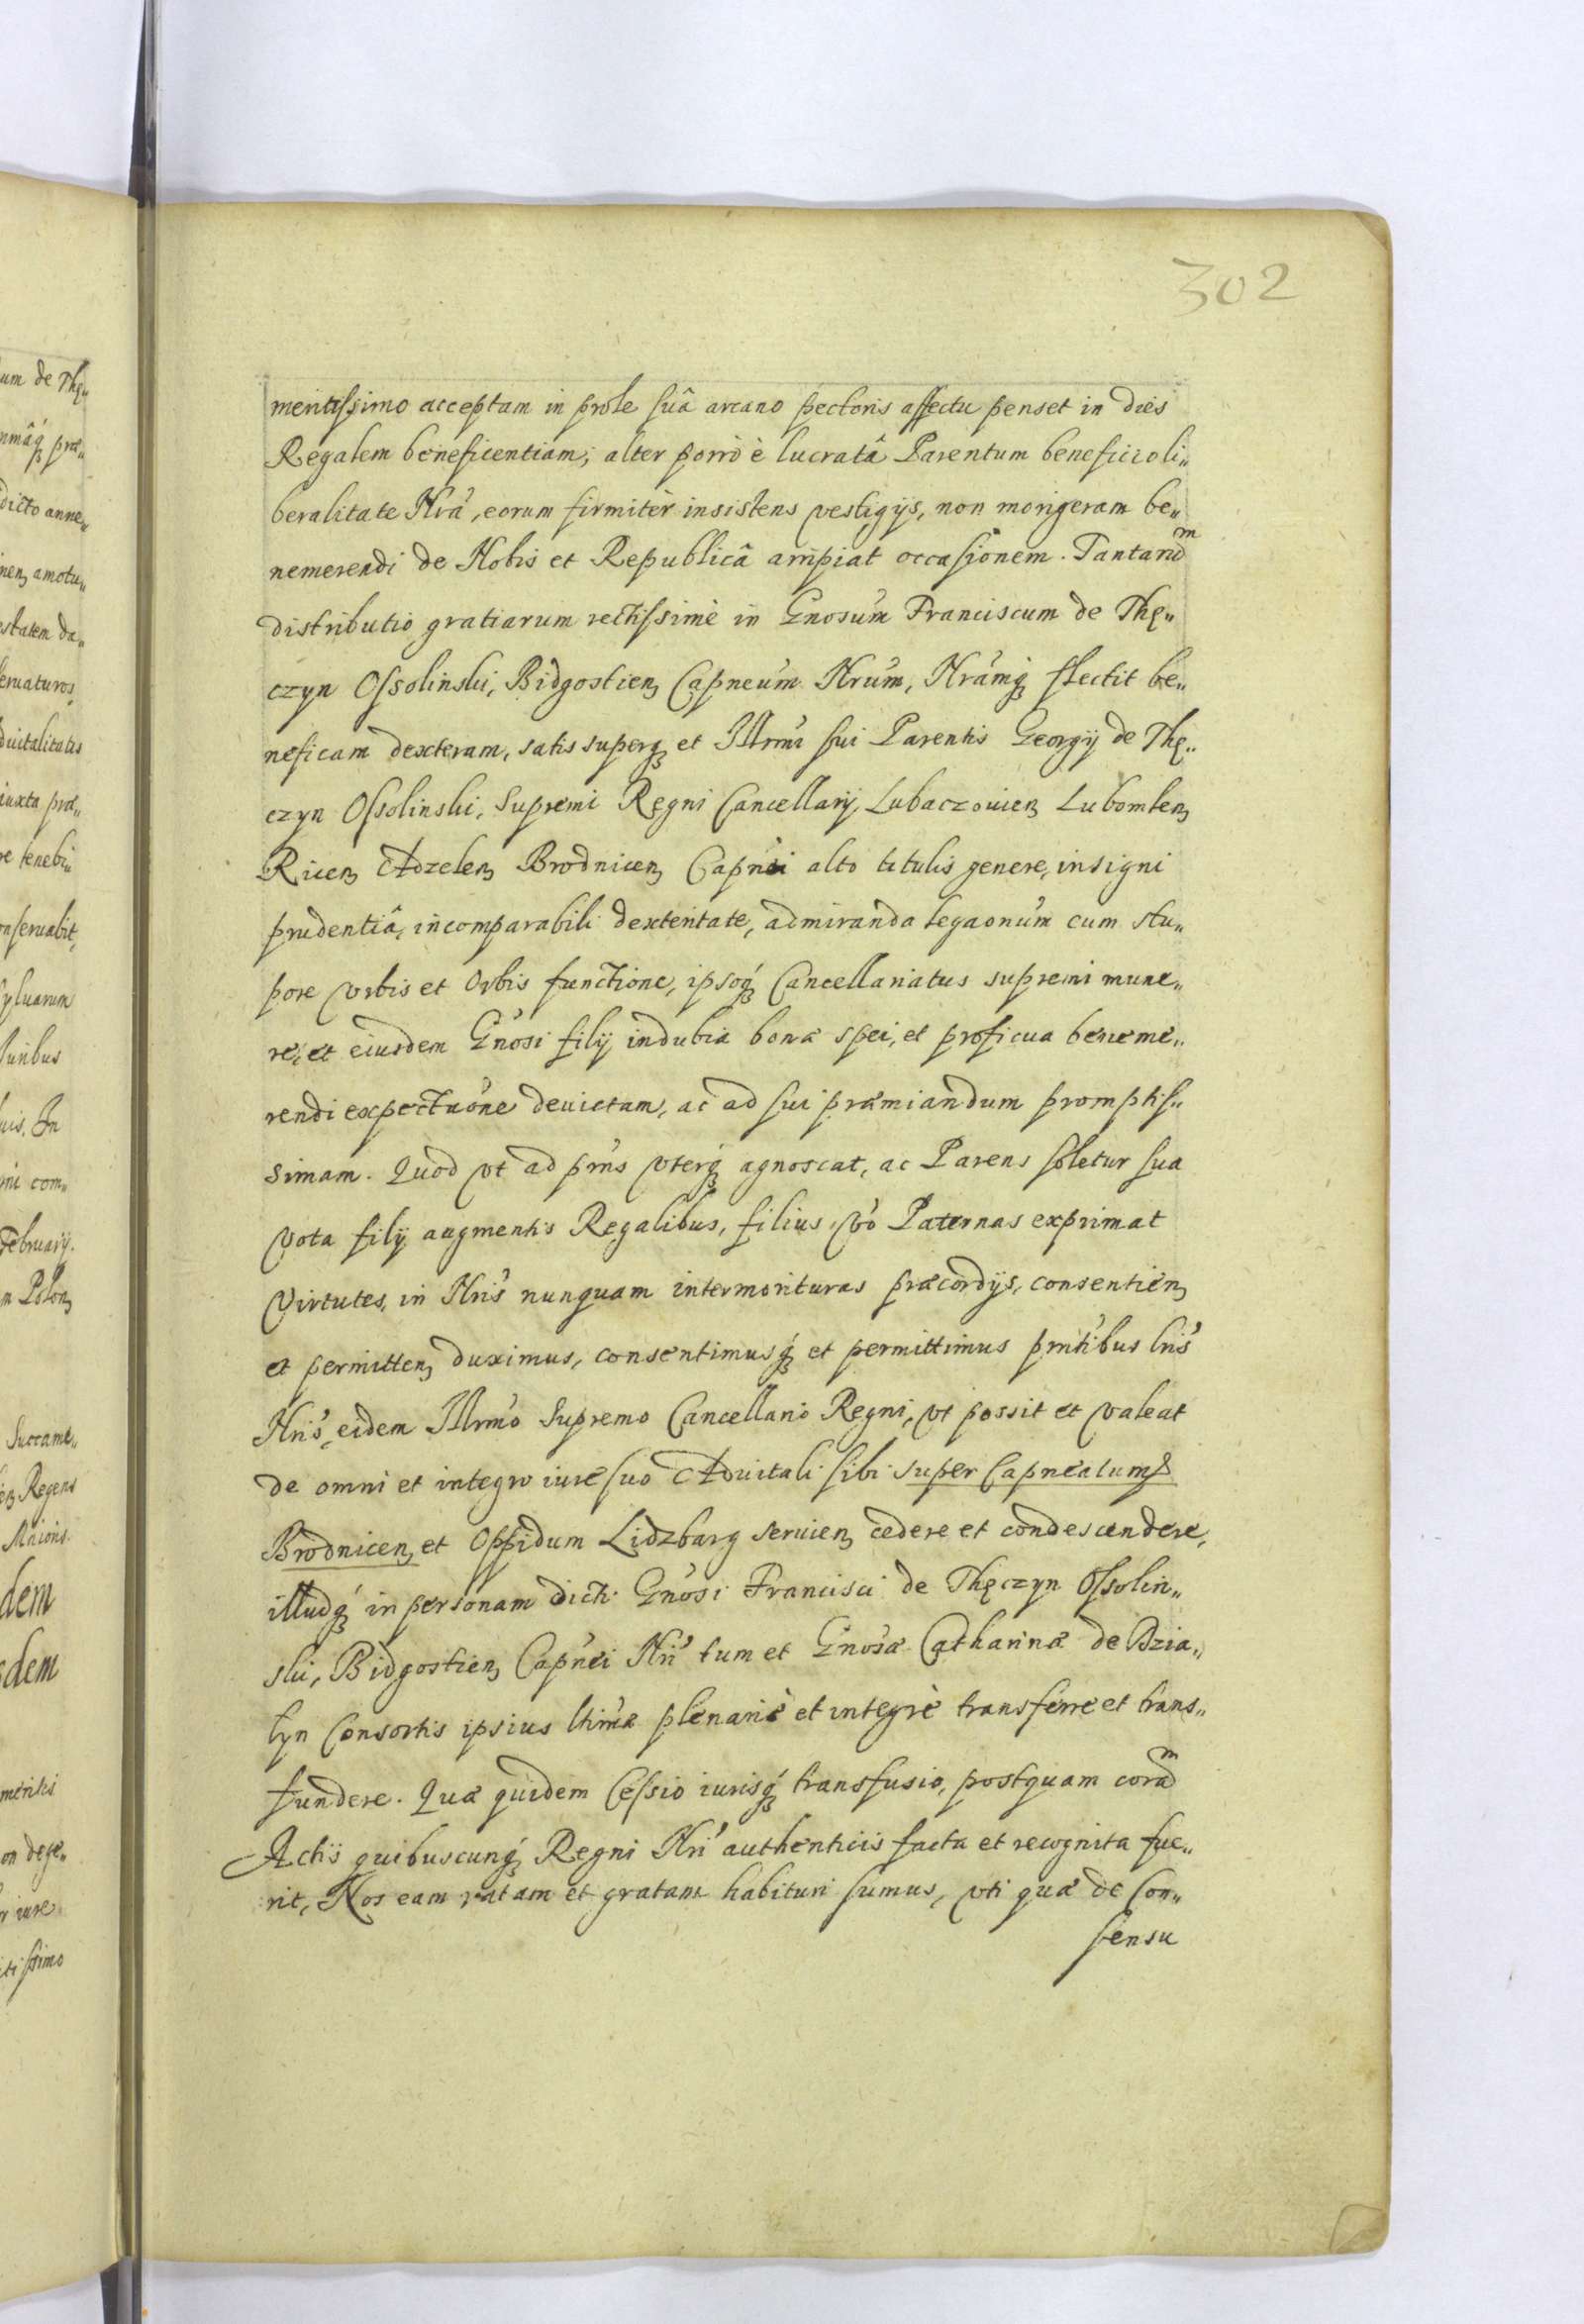 302
meritissimo acceptam in prole suâ arcano pectoris affectu penset in dies
Regalem beneficentiam; alter porrò è lucratâ Parentum beneficio li„
beralitate Nrá, eorum firmiter insistens vestigijs, non morigeram be„
nemerendi de Nobis et Republicâ arripiat occasionem. Tantarum
distributio gratiarum rectissimè in Gnosum Franciscum de Thę„
czyn Ossolinski, Bidgostien Capneum Nrum, Nramq flectit be„
neficam dexteram, satis superq et Illrmi sui Parentis Georgij de Thę„
czyn Ossolinski, Supremi Regni Cancellarij Lubaczouien Lubomlen
Ricen Adzelen Brodnicen Capnei alto titulis genere, insigni
prudentiâ, incomparabili dexteritate, admiranda legaonum cum stu„
pore vrbis et Orbis functione, ipsoq Cancellariatus supremi mune„
re, et eiusdem Gnosi filij indubia bonæ spei, et proficua beneme„
rendi expectaone deuictam, ac ad sui præmiandum promptis„
simam. Quod vt ad pns vterq agnoscat, ac Parens soletur sua
vota filij augmentis Regalibus, filius vo Paternas exprimat
Virtutes, in Nris nunquam intermorituras præcordijs, consentien
et permitten duximus, consentimusq et permittimus pntibus lris
Nris, eidem Illrmo Supremo Cancellario Regni, vt possit et valeat
de omni et integro iure suo Aduitali sibi super Capneatum
Brodnicen, et Oppidum Lidzbarg seruien cedere et condescendere,
illudq in personam dicti Gnosi Francisci de Thęczyn Ossolin„
ski, Bidgostien Capnei Nri tum et Gnosæ Catharinæ de Dzia„
lyn Consortis ipsius ltimæ plenariè et integrè transferre et trans„
fundere. Quæ quidem Cessio iurisq transfusio, postquam coram
Actis quibuscunq Regni Nri authenticis facta et recognita fue„
rit, Nos eam ratam et gratam habituri sumus, vti quæ de Con„
sensu